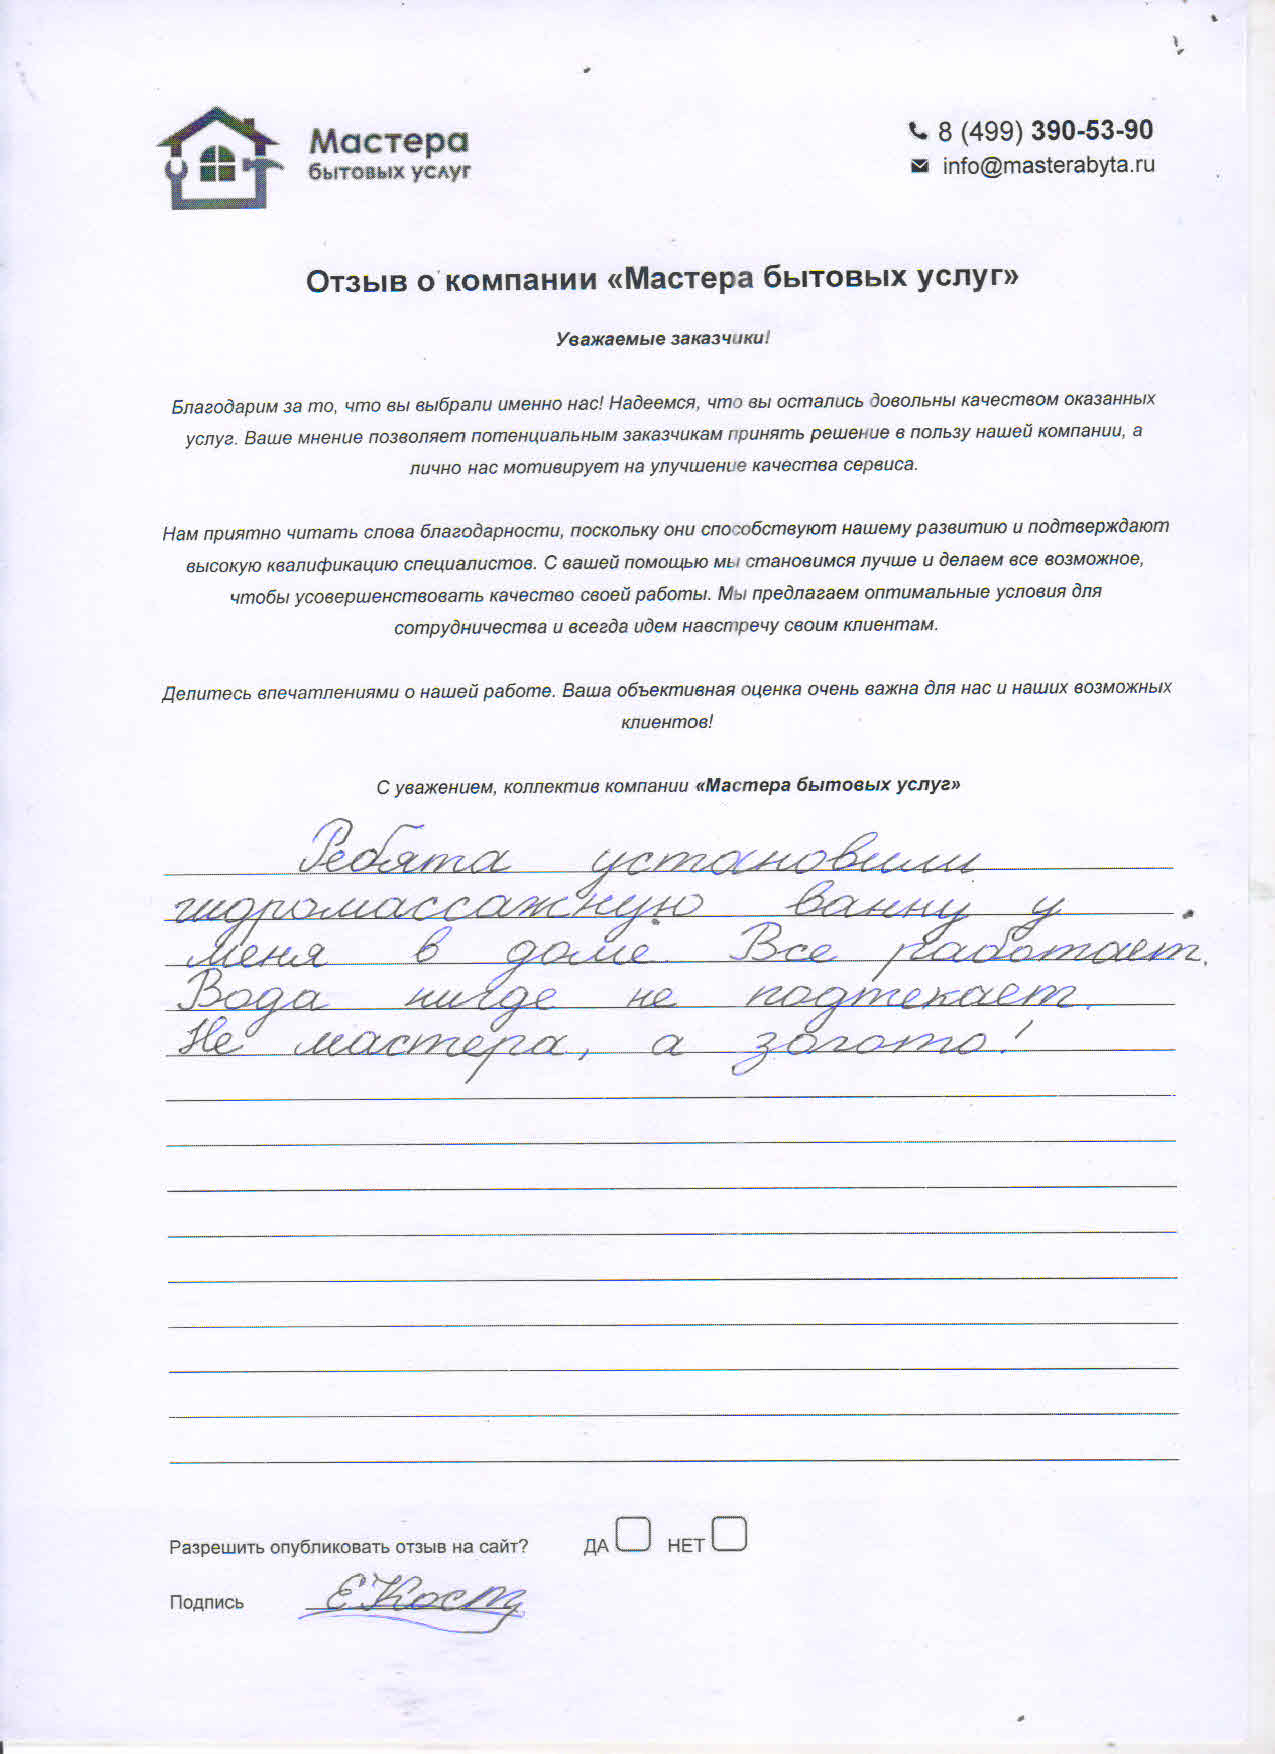 Мастера
бытовых услуг
8 (499) 390-53-90
info@masterabyta.ru
Отзыв о компании «Мастера бытовых услуг»
Уважаемые заказчики!
Благодарим за то, что вы выбрали именно нас! Надеемся, что вы остались довольны качеством оказанных
услуг. Ваше мнение позволяет потенциальным заказчикам принять решение в пользу нашей компании, а
лично нас мотивирует на улучшение качества сервиса.
Нам приятно читать слова благодарности, поскольку они способствуют нашему развитию и подтверждают
высокую квалификацию специалистов. С вашей помощью мы становимся лучше и делаем все возможное,
чтобы усовершенствовать качество своей работы. Мы предлагаем оптимальные условия для
сотрудничества и всегда идем навстречу своим клиентам.
Делитесь впечатлениями о нашей работе. Ваша объективная оценка очень важна для нас и наших возможных
клиентов!
С уважением, коллектив компании «Мастера бытовых услуг»
Ребята установили
гидромассажную ванну у
меня в доме. Все работает.
Вода нигде не подтекает.
Не мастера, а золото!
Разрешить опубликовать отзыв на сайт? ДА НЕТ
Подпись